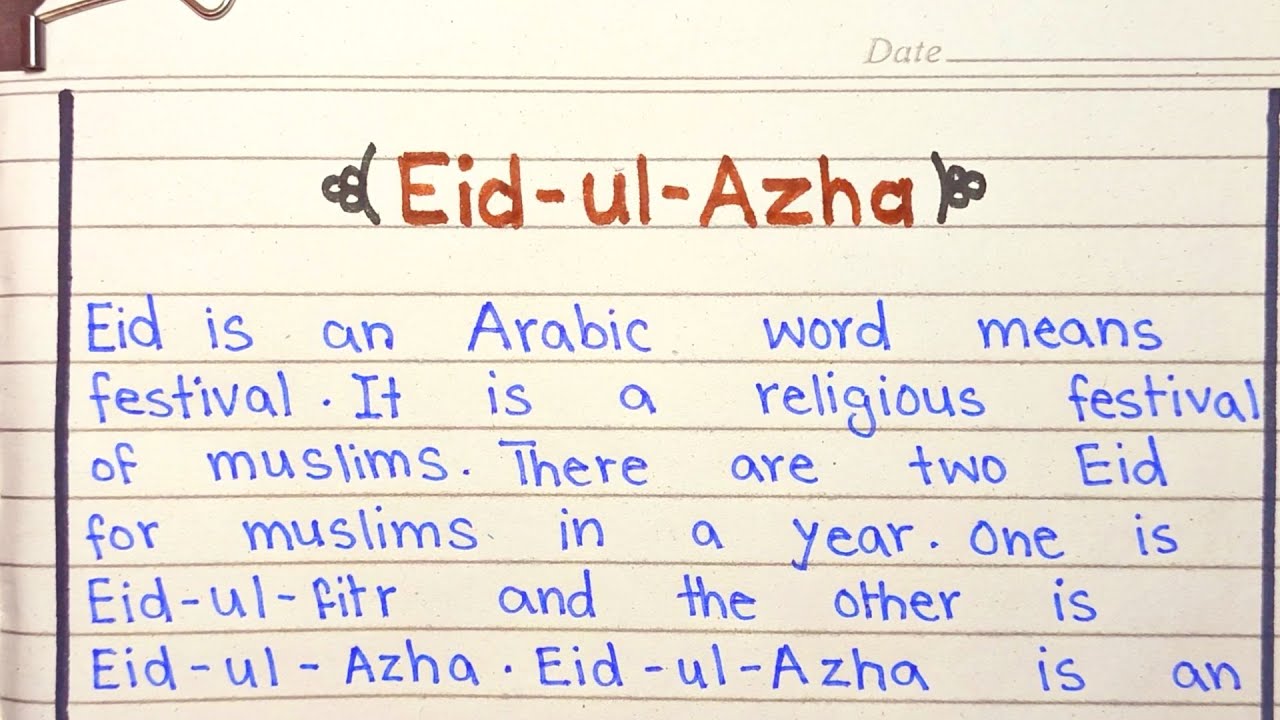 Date
Eid-ul-Azha
Eid is an Arabic word means
festival. It is a religious festival
of muslims. There are two Eid
for muslims in a year. One is
Eid-ul-fitr and the other is
Eid-ul-Azha. Eid-ul-Azha is an